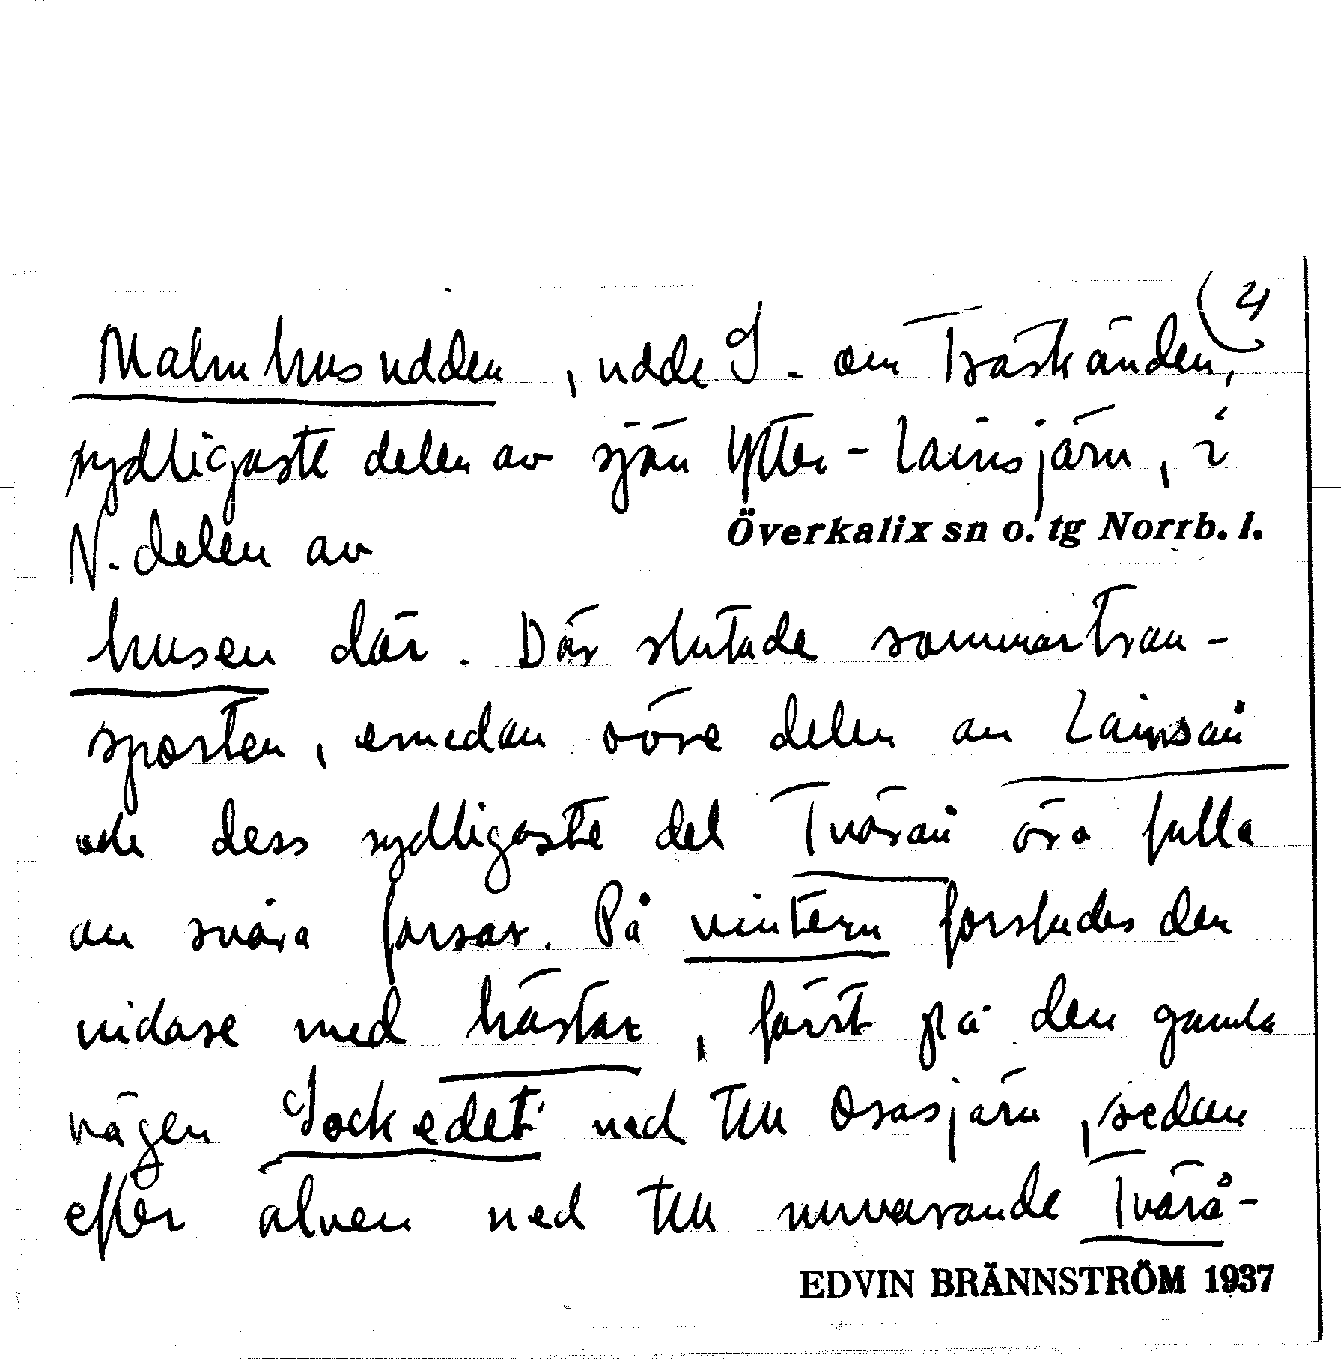 (2)
Malmhusudden, udde S. om Träskänden,
sydligaste delen av sjön Ytter-Lainsjärn, i
N. delen av Överkalix sn o. tg Norrb. l.
husen där. Där slutade sommartran-
sporten, emedan övre delen av Lainsån
och dess sydligaste del Tvärån äro fulla
av svåra forsar. På vintern forslades den
vidare med hästar, först på den gamla
vägen Sockedet ned till Orasjärn, sedan
efter älven ned till nuvarande Tvärå-
EDVIN BRÄNNSTRÖM 1937